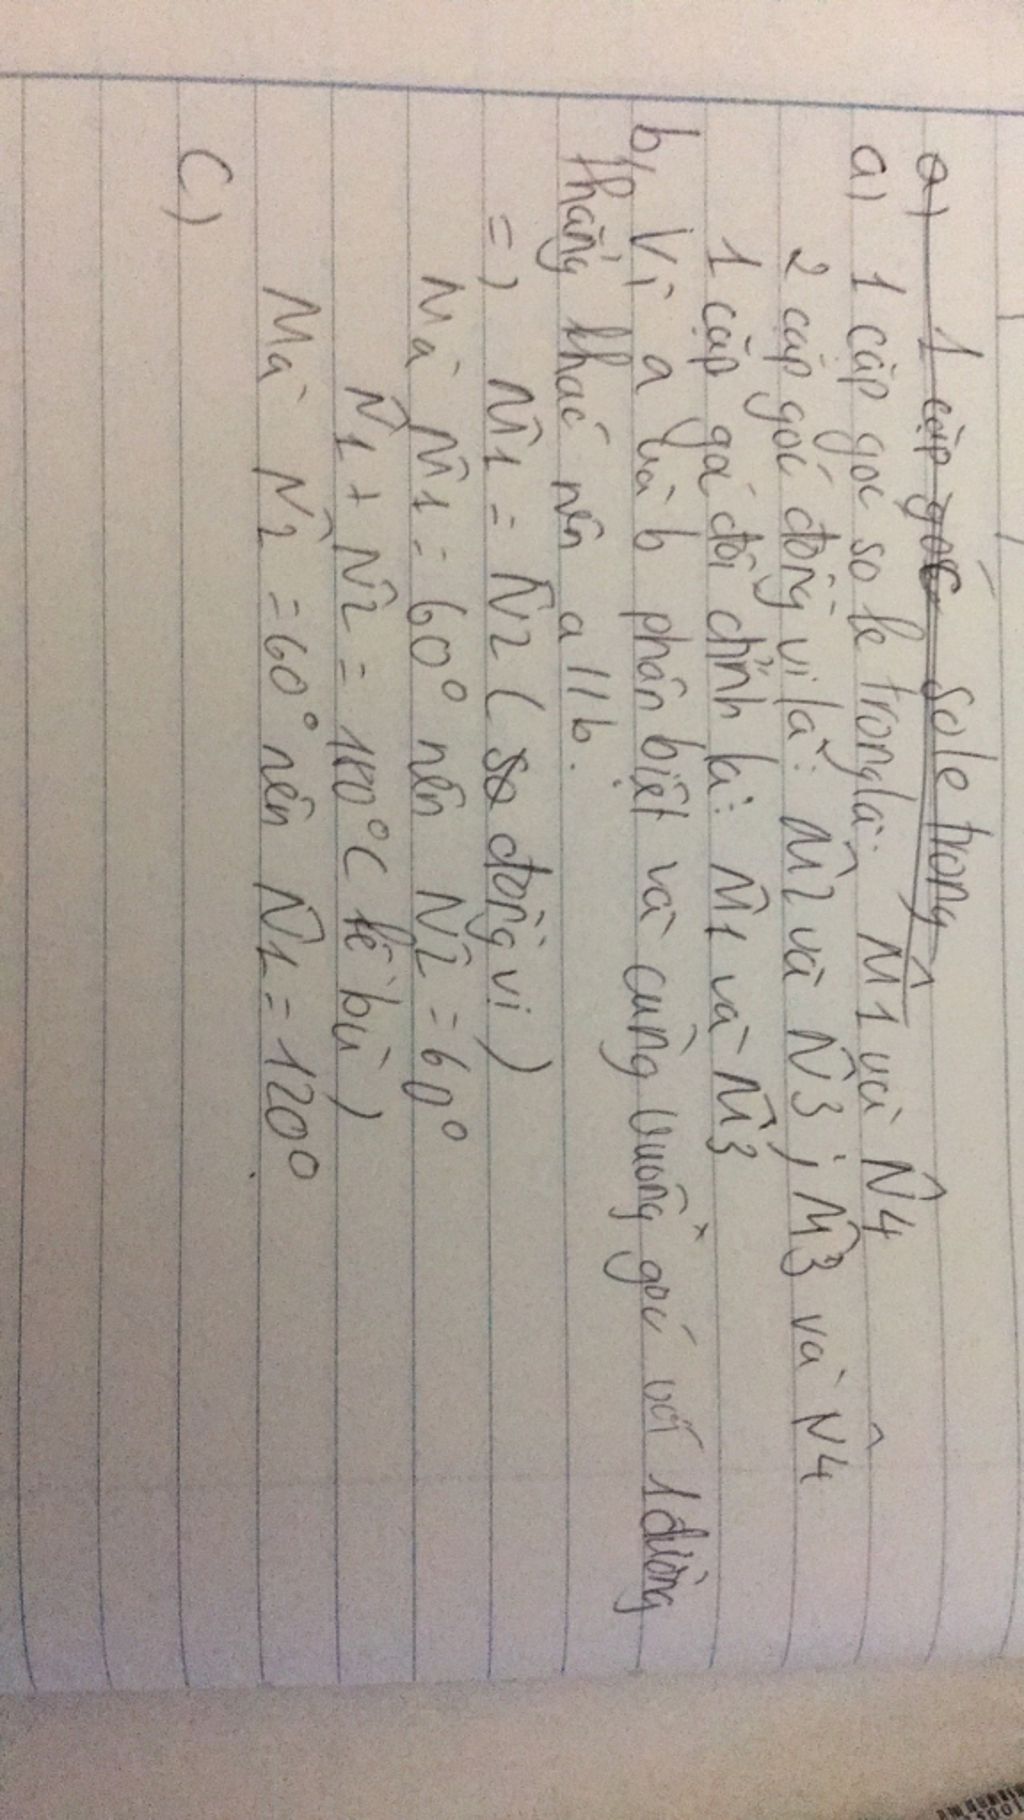 a) 1 cặp góc so le trong
a) 1 cặp góc so le trong là: M̂1 và N̂4
2 cặp góc đồng vị là: M̂2 và N̂3; M̂3 và N̂4
1 cặp gó đối đỉnh là: M̂1 và M̂3
b, Vì a và b phân biệt và cùng vuông góc với 1 đường
thẳng khác nên a // b.
=) M̂1 = N̂2 ( so đồng vị )
Mà M̂1 = 60° nên N̂2 = 60°
N̂1 + N̂2 = 180°C kề bù )
Mà N̂2 = 60° nên N̂1 = 120°
C)